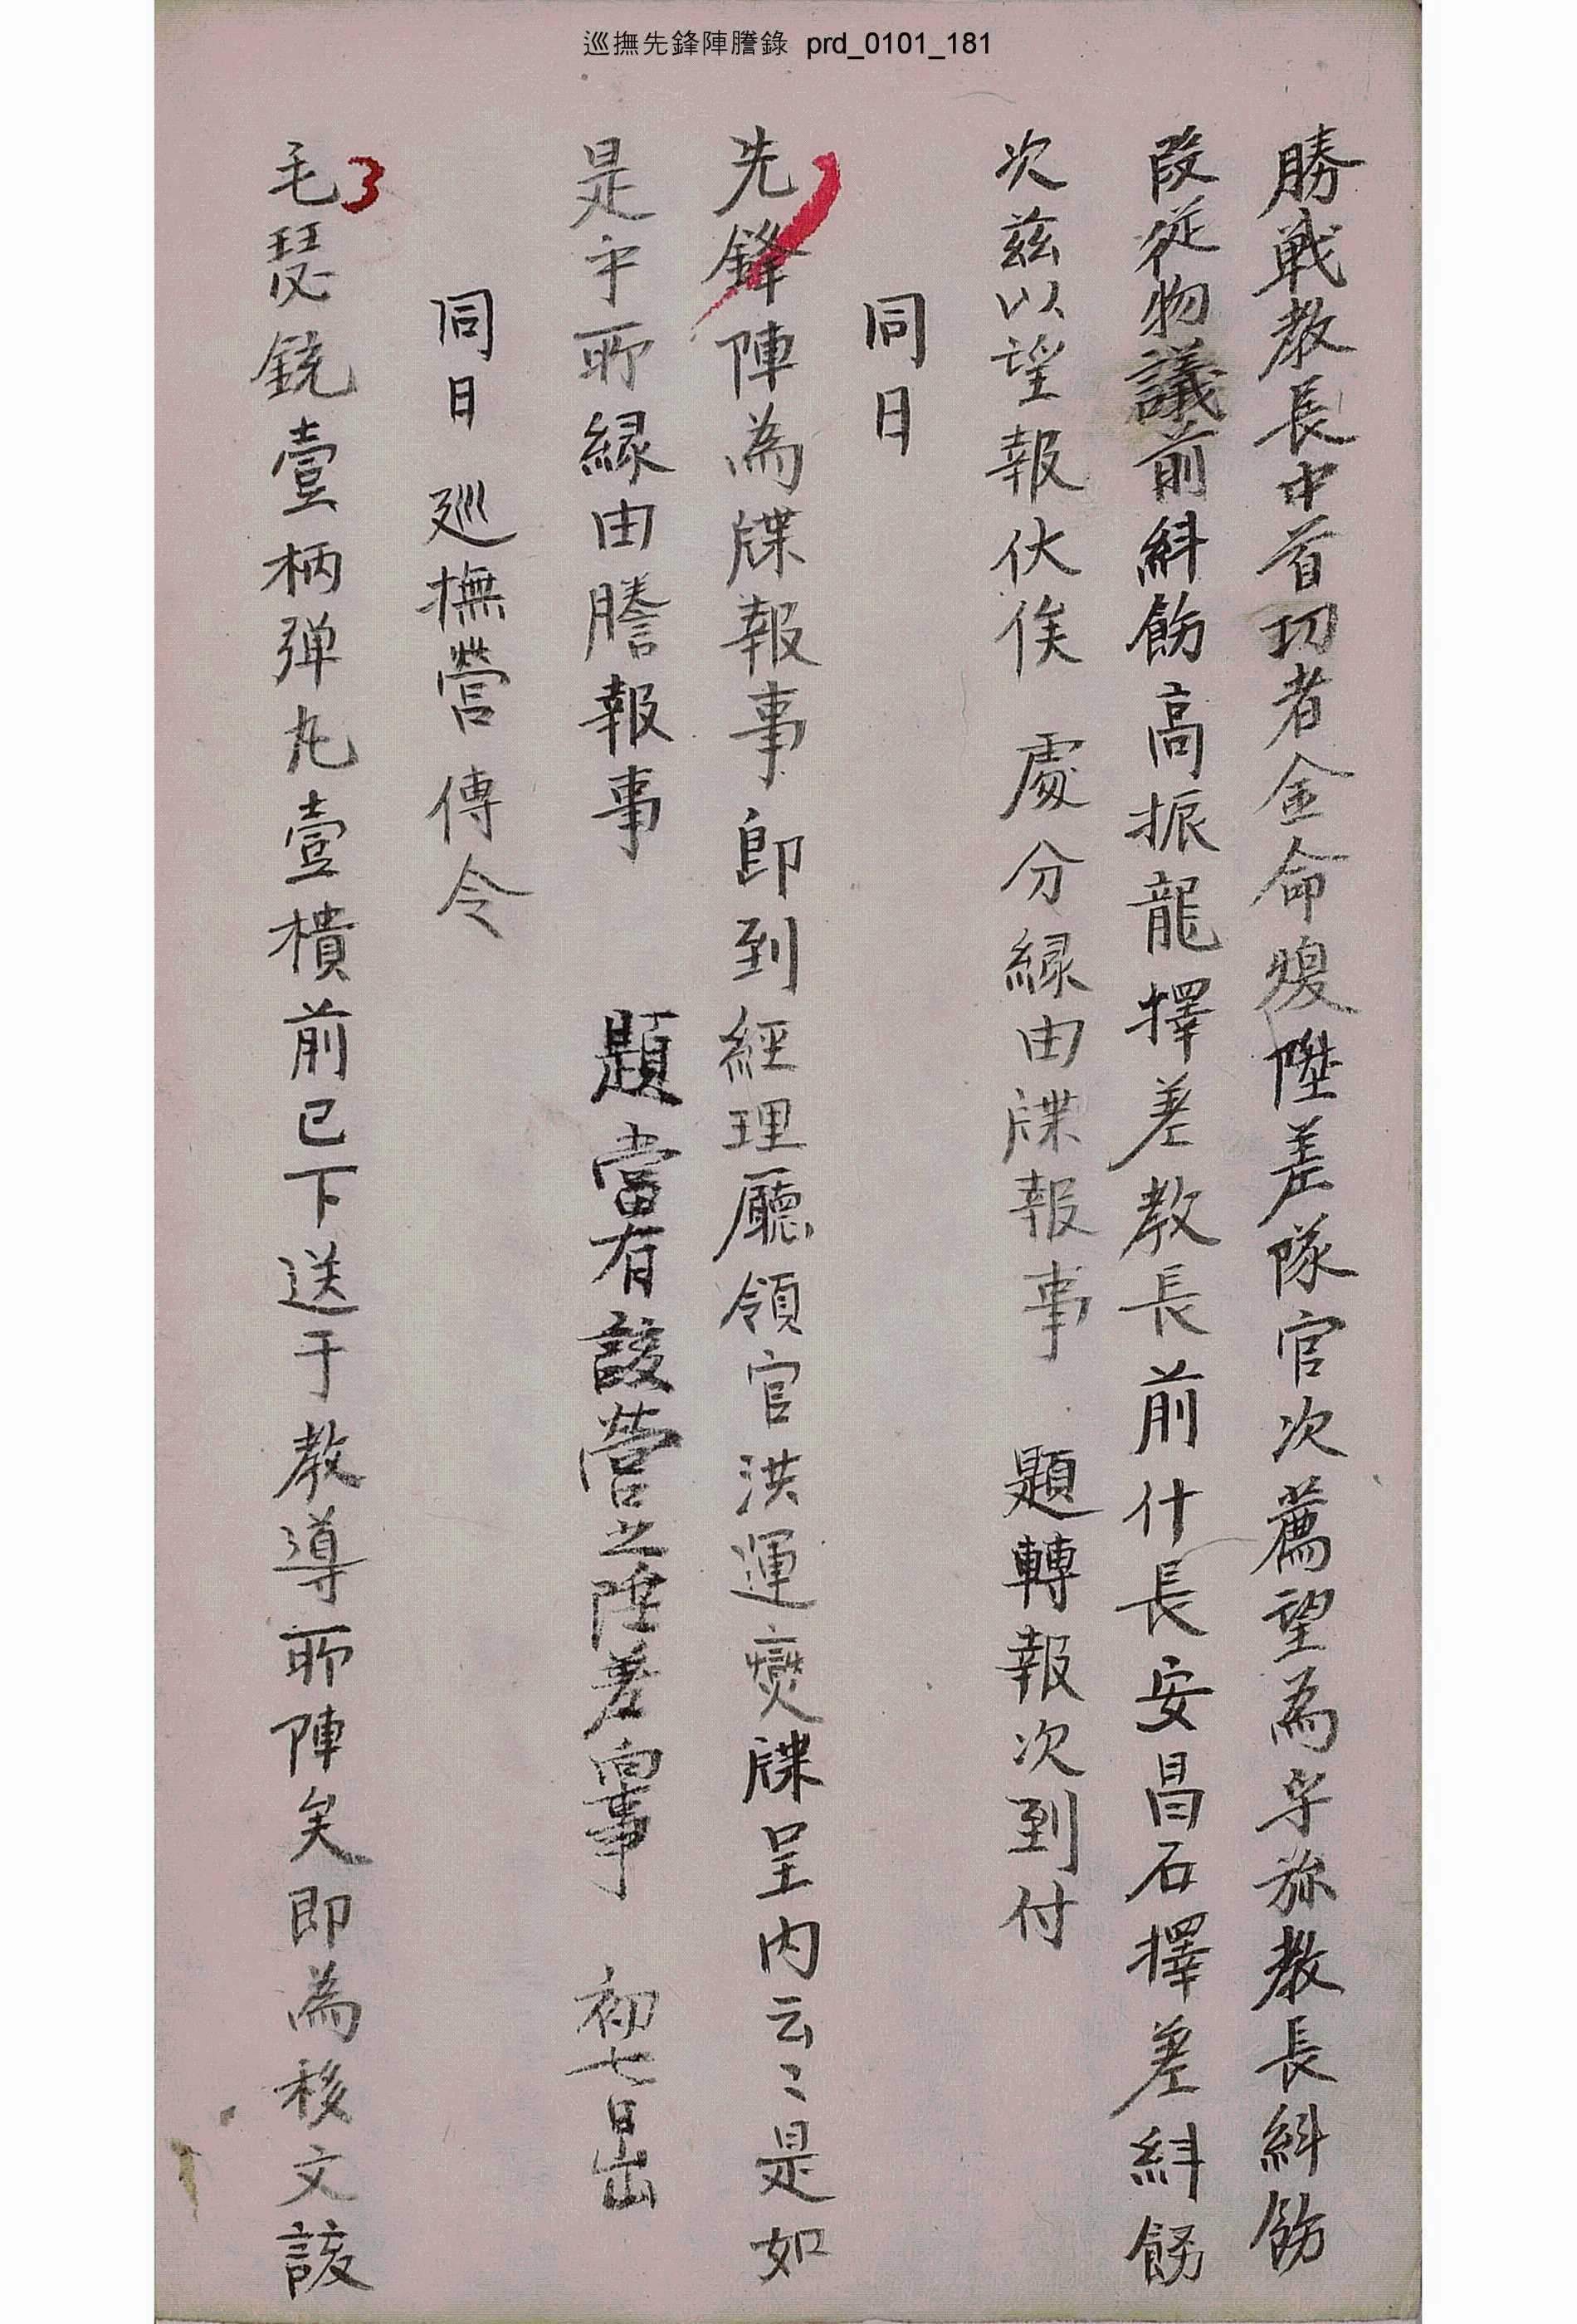 巡撫先鋒陣謄錄 prd_0101_181
勝戰教長中首功者金命復陞差隊官次薦望爲乎旀教長糾飭
段從物議前糾飭高振龍擇差教長前什長安昌石擇差糾飭
次玆以望報伏俟 處分緣由牒報事 題轉報次到付
同日
先鋒陣為牒報事卽到經理廳領官洪運燮牒呈內云〻是如
是乎所緣由謄報事 題當有該營之陞差向事 初七日出
同日 廵撫營傳令
毛瑟銃壹柄弹丸壹樻前已下送于教導所陣矣即為移文該
3